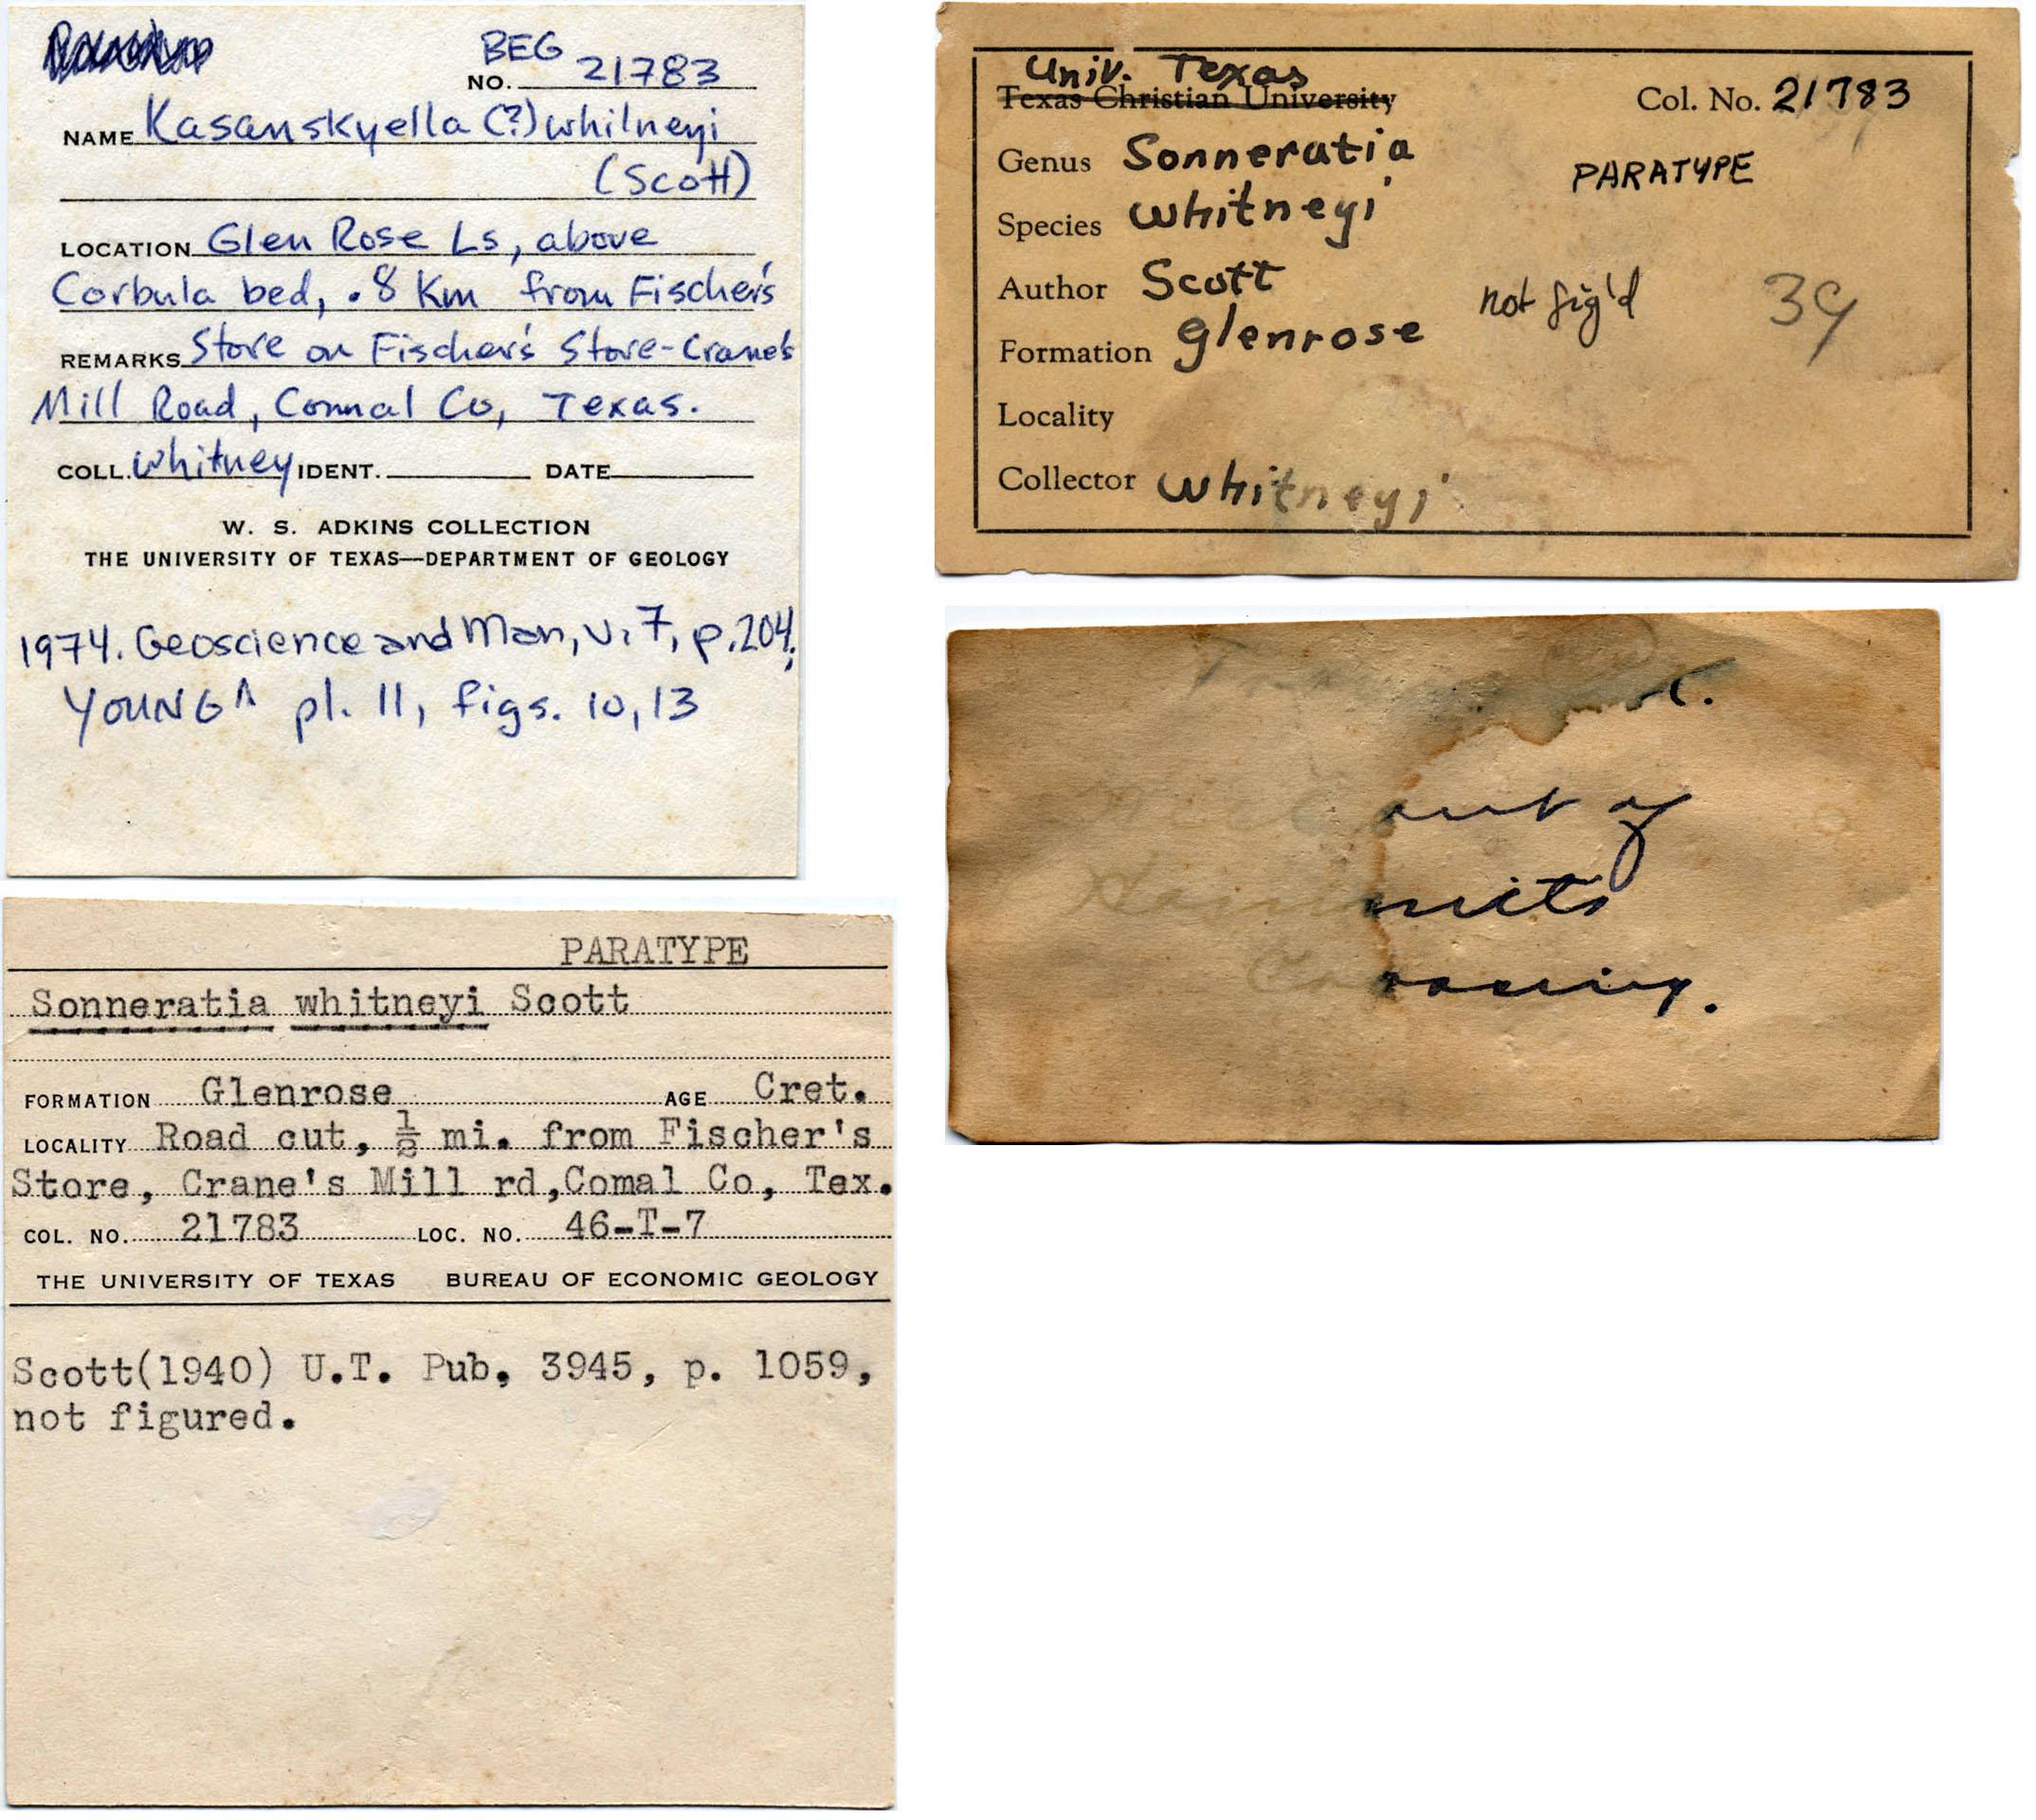 BEG
NO. 21783
NAME Kasanskyella (?) whilneyi
(Scott)
LOCATION Glen Rose Ls, above
Corbula bed, .8 Km from Fischer's
REMARKS Store on Fischer's Store-Crane's
Mill Road, Commal Co, Texas.
COLL. Whitney IDENT. DATE
W. S. ADKINS COLLECTION
THE UNIVERSITY OF TEXAS—DEPARTMENT OF GEOLOGY
1974. Geoscience and Man, v. 7, p. 204;
YOUNG ^ pl. 11, figs. 10, 13
Univ. Texas
Texas Christian University Col. No. 21783
Genus Sonneratia
PARATYPE
Species whitneyi
Author Scott
not fig'd 39
Formation glenrose
Locality
Collector whitneyi
out of
Crossing.
PARATYPE
Sonneratia whitneyi Scott
FORMATION Glenrose AGE Cret.
LOCALITY Road cut, ½ mi. from Fischer's
Store, Crane's Mill rd, Comal Co, Tex.
COL. NO. 21783 LOC. NO. 46-T-7
THE UNIVERSITY OF TEXAS BUREAU OF ECONOMIC GEOLOGY
Scott(1940) U.T. Pub. 3945, p. 1059,
not figured.